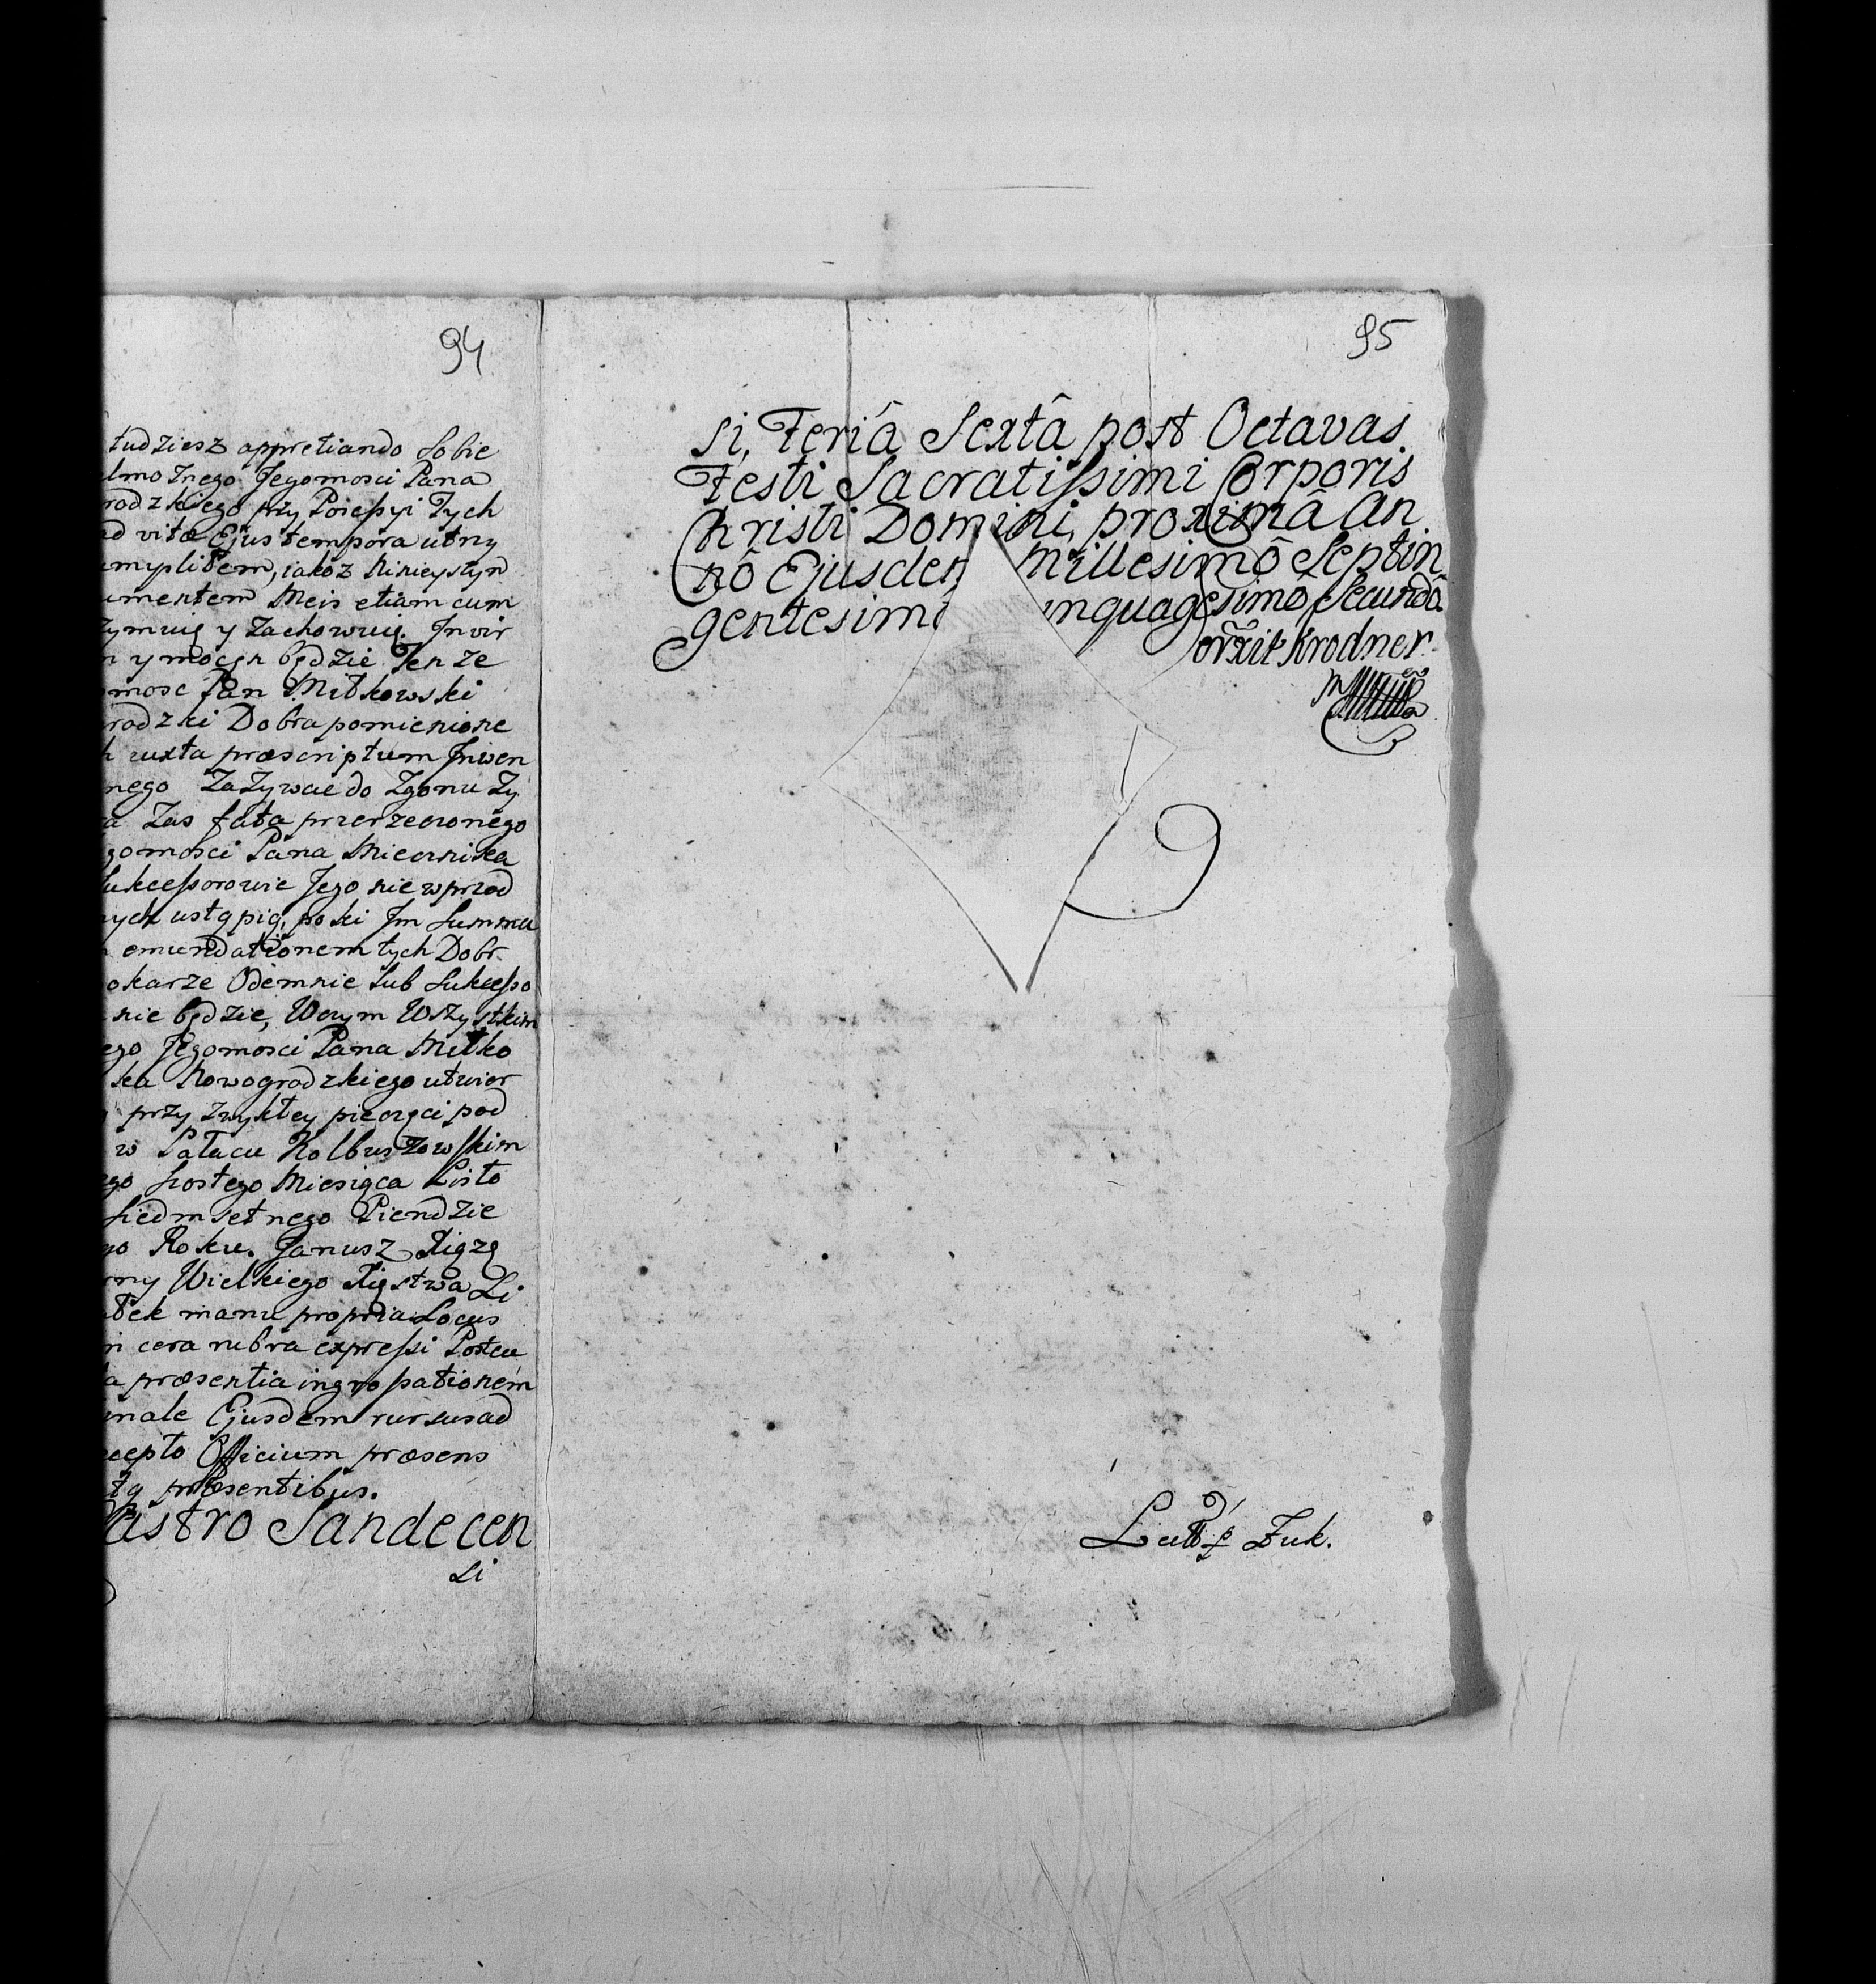 94
tudziesz appretiando Sobie
lmożnego Jegomosci Pana
rodzkiego przy Possessyi Tych
ad vitæ Ejus tempora utrzy
umyslitem, iakoz Ninieyszym
umentem Meis etiam cum
zymuię y Zachowuię. Invir
n ymocen będzie Ten ze
mosc Pan Mitkowski
rodzki Dobra pomienione
h iuxta præscriptum Inwen
nego Zazywac do Zgonu Zy
a Zas fata przerzeczonego
gomosci Pana Miecznika
Sukcessorowie Jego nie wprzod
nych ustąpią, poki Jm Summa
emundationem tych Dobr
okarze Odemnie Lub Sukcesso
nie będzie, W czym Wszystkim
ego Jegomosci Pana Mitko
ka Nowogrodzkiego utwier
przy zwykłey pieczęci pod
w Pałacu Kolbuszowskim
ego szostego Miesiąca Listo
siedmsetnego Piendzie
go Roku. Janusz Xiąze
rny Wielkiego Xięstwa Li
atek manu propria Locus
in cera rubra expressi Post cu
a præsentia ingrossationem
inale Ejusdem rursus ad
cepto Officium præsens
tq præsentibus.
Castro Sandecen
si
95
si, Feriâ Sextâ post Octavas
Festi Sacratissimi Corporis
Christi Domini, proximâ An
nô Ejusdem Millesimô Septin
gentesimô inquagesimô Secundô
Krodner
Żuk.